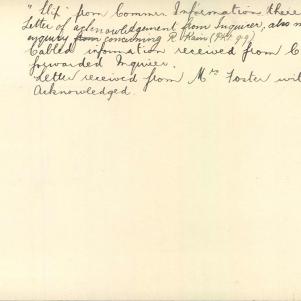 " from Common. Information there
Letter of acknowledgement from Inquirer, also
inquiry from concerning R. O'Kain
Cabled information received from C
forwarded Inquirer.
Letter received from Mrs Foster wit
Acknowledged.